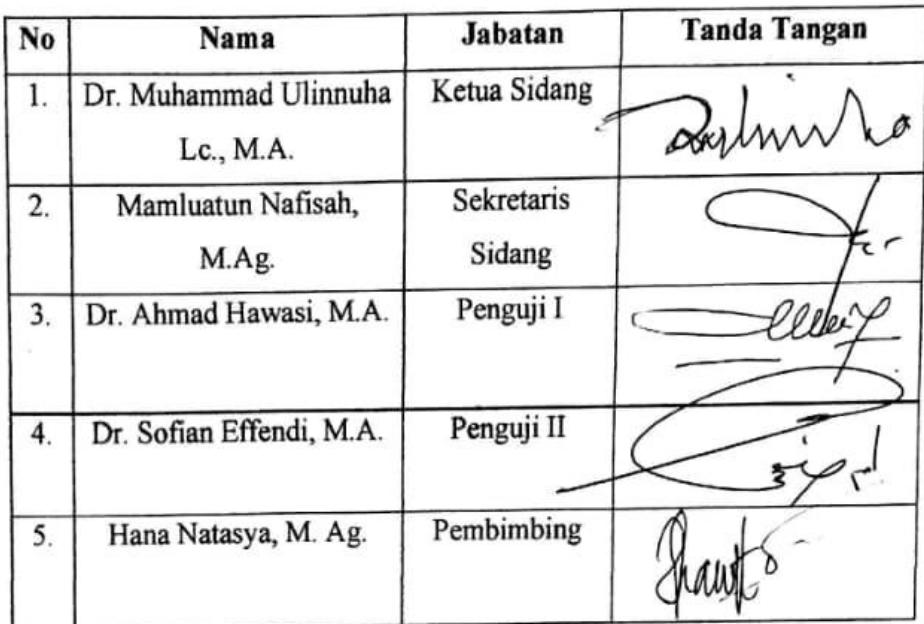 No Nama Jabatan Tanda Tangan
1. Dr. Muhammad Ulinnuha Ketua Sidang
Lc., M.A.
2. Mamluatun Nafisah, Sekretaris
M.Ag. Sidang
3. Dr. Ahmad Hawasi, M.A. Penguji I
4. Dr. Sofian Effendi, M.A. Penguji II
5. Hana Natasya, M. Ag. Pembimbing